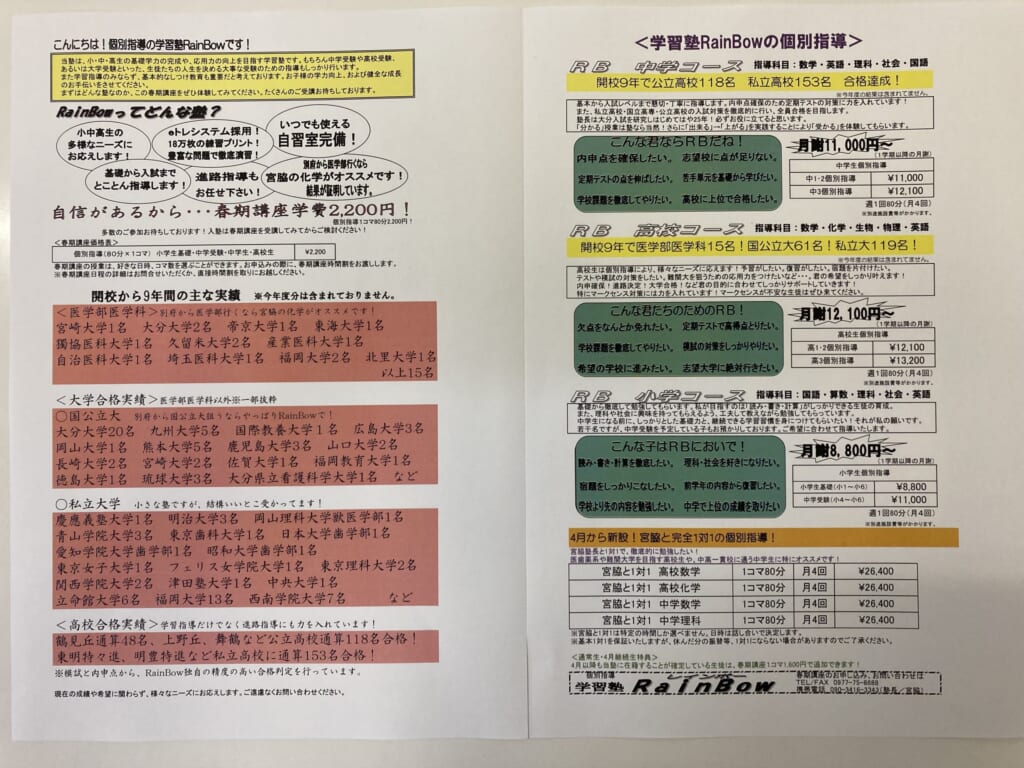 こんにちは！個別指導の学習塾RainBowです！
当塾は、小・中・高生の基礎学力の完成や、応用力の向上を目指す学習塾です。もちろん中学受験や高校受験、
あるいは大学受験といった、生徒たちの人生を決める大事な受験のための指導もしっかり行います。
また学習指導のみならず、基本的なしつけ教育も重要だと考えております。お子様の学力向上、および健全な成長
のお手伝いをさせてください。
まずはどんな塾なのか、この春期講座をぜひ体験してみてください。たくさんのご受講お待ちしております。
RainBowってどんな塾？
小中高生の
多様なニーズに
お応えします！
eトレシステム採用！
18万枚の練習プリント！
豊富な問題で徹底演習！
いつでも使える
自習室完備！
基礎から入試まで
とことん指導します！
進路指導も
お任せ下さい！
別府から医学部行くなら
宮脇の化学がオススメです！
結果が証明しています。
自信があるから・・・春期講座学費2,200円！
個別指導1コマ80分2,200円！
多数のご参加お待ちしております！入塾は春期講座を受講してみてからご検討ください！
＜春期講座価格表＞
個別指導（80分×1コマ） 小学生基礎・中学受験・中学生・高校生 ¥2,200
春期講座の授業は、好きな日時、コマ数を選ぶことができます。お申込みの際に、春期講座時間割をお渡しします。
※春期講座日程の詳細はお問合せいただくか、直接時間割を取りにお越しください。
開校から9年間の主な実績 ※今年度分は含まれておりません。
＜医学部医学科＞別府から医学部行くなら宮脇の化学がオススメです！
宮崎大学1名 大分大学2名 帝京大学1名 東海大学1名
獨協医科大学1名 久留米大学2名 産業医科大学1名
自治医科大学1名 埼玉医科大学1名 福岡大学2名 北里大学1名
以上15名
＜大学合格実績＞医学部医学科以外※一部抜粋
〇国公立大 別府から国公立大狙うならやっぱりRainBowで！
大分大学20名 九州大学5名 国際教養大学1名 広島大学3名
岡山大学1名 熊本大学5名 鹿児島大学3名 山口大学2名
長崎大学2名 宮崎大学2名 佐賀大学1名 福岡教育大学1名
徳島大学1名 琉球大学3名 大分県立看護科学大学1名 など
〇私立大学 小さな塾ですが、結構いいとこ受かってます！
慶應義塾大学1名 明治大学3名 岡山理科大学獣医学部1名
青山学院大学3名 東京歯科大学1名 日本大学歯学部1名
愛知学院大学歯学部1名 昭和大学歯学部1名
東京女子大学1名 フェリス女学院大学1名 東京理科大学2名
関西学院大学2名 津田塾大学1名 中央大学1名
立命館大学6名 福岡大学13名 西南学院大学7名 など
＜高校合格実績＞学習指導だけでなく進路指導にも力を入れています！
鶴見丘通算48名、上野丘、舞鶴など公立高校通算118名合格！
東明特々進、明豊特進など私立高校に通算153名合格！
※模試と内申点から、RainBow独自の精度の高い合格判定を行っています。
現在の成績や希望に関わらず、様々なニーズにお応えします。ご遠慮なくお問い合わせください。
＜学習塾RainBowの個別指導＞
RB 中学コース 指導科目：数学・英語・理科・社会・国語
開校9年で公立高校118名 私立高校153名 合格達成！
※今年度の結果は含まれてません。
基本から入試レベルまで懇切・丁寧に指導します。内申点確保のため定期テストの対策に力を入れています！
また、私立高校・国立高専・公立高校の入試対策を徹底的に行い、全員合格を目指します。
塾長は大分入試を研究しはじめてはや25年！必ずお役に立てると思います。
「分かる」授業は塾なら当然！さらに「出来る」→「上がる」を実践することにより「受かる」を体験してもらいます。
こんな君ならRBだね！
内申点を確保したい。 志望校に点が足りない。
定期テストの点を伸ばしたい。 苦手単元を基礎から学びたい。
学校課題を徹底してやりたい。 高校に上位で合格したい。
月謝11,000円～
（1学期以降の月謝）
中学生個別指導
中1・2個別指導 ¥11,000
中3個別指導 ¥12,100
週1回80分（月4回）
※別途施設費等がかかります。
RB 高校コース 指導科目：数学・化学・生物・物理・英語
開校9年で医学部医学科15名！国公立大61名！私立大119名！
※今年度の結果は含まれてません。
高校生は個別指導により、様々なニーズに応えます！予習がしたい。復習がしたい。宿題を片付けたい。
テストや模試の対策をしたい。難関大を狙うための応用力をつけたいなど・・・。君の希望をしっかり叶えます！
内申確保！進路決定！大学合格！など君の目的に合わせてしっかりサポートしていきます！
特にマークセンス対策には力を入れています！マークセンスが不安な生徒はぜひ来てください。
こんな君たちのためのRB！
欠点をなんとか免れたい。 定期テストで高得点とりたい。
学校課題を徹底してやりたい。 模試の対策をしっかりやりたい。
希望の学校に進みたい。 志望大学に絶対行きたい。
月謝12,100円～
（1学期以降の月謝）
高校生個別指導
高1・2個別指導 ¥12,100
高3個別指導 ¥13,200
週1回80分（月4回）
※別途施設費等がかかります。
RB 小学コース 指導科目：国語・算数・理科・社会・英語
基礎から徹底して勉強してもらいます。私が目指すのは「読み・書き・計算」がしっかりできる生徒の育成。
また、理科や社会に興味を持ってもらえるよう、工夫して教えながら勉強してもらっています！
中学生になる前に、しっかりとした基礎力と、継続できる学習習慣を身につけてもらいたい！それが私の願いです。
若干名ですが、中学受験を予定している子もお預かりしております。ご希望に合わせて指導いたします。
こんな子はRBにおいで！
読み・書き・計算を徹底したい。 理科・社会を好きになりたい。
宿題をしっかりこなしたい。 前学年の内容から復習したい。
学校より先の内容を勉強したい。 中学で上位の成績を取りたい
月謝8,800円～
（1学期以降の月謝）
小学生個別指導
小学生基礎（小1～小6） ¥8,800
中学受験（小4～小6） ¥11,000
週1回80分（月4回）
※別途施設費等がかかります。
4月から新設！宮脇と完全1対1の個別指導！
宮脇塾長と1対1で、徹底的に勉強したい！
医歯薬系や難関大学を目指す高校生や、中高一貫校に通う中学生に特にオススメです！
宮脇と1対1 高校数学 1コマ80分 月4回 ¥26,400
宮脇と1対1 高校化学 1コマ80分 月4回 ¥26,400
宮脇と1対1 中学数学 1コマ80分 月4回 ¥26,400
宮脇と1対1 中学理科 1コマ80分 月4回 ¥26,400
※宮脇と1対1は特定の時間しか選べません。日時は話し合いで決定します。
※基本1対1を保証いたしますが、休んだ分の振替等、1対1にならない場合がありますのでご了承ください。
＜通常生・4月継続生特典＞
4月以降も当塾に在籍することが確定している生徒は、春期講座1コマ1,600円で追加できます！
個別指導
学習塾 RainBow
春期講座のお申し込み、お問い合わせは
TEL/FAX 0977-75-8688
携帯電話 090-3416-3343（塾長／宮脇）